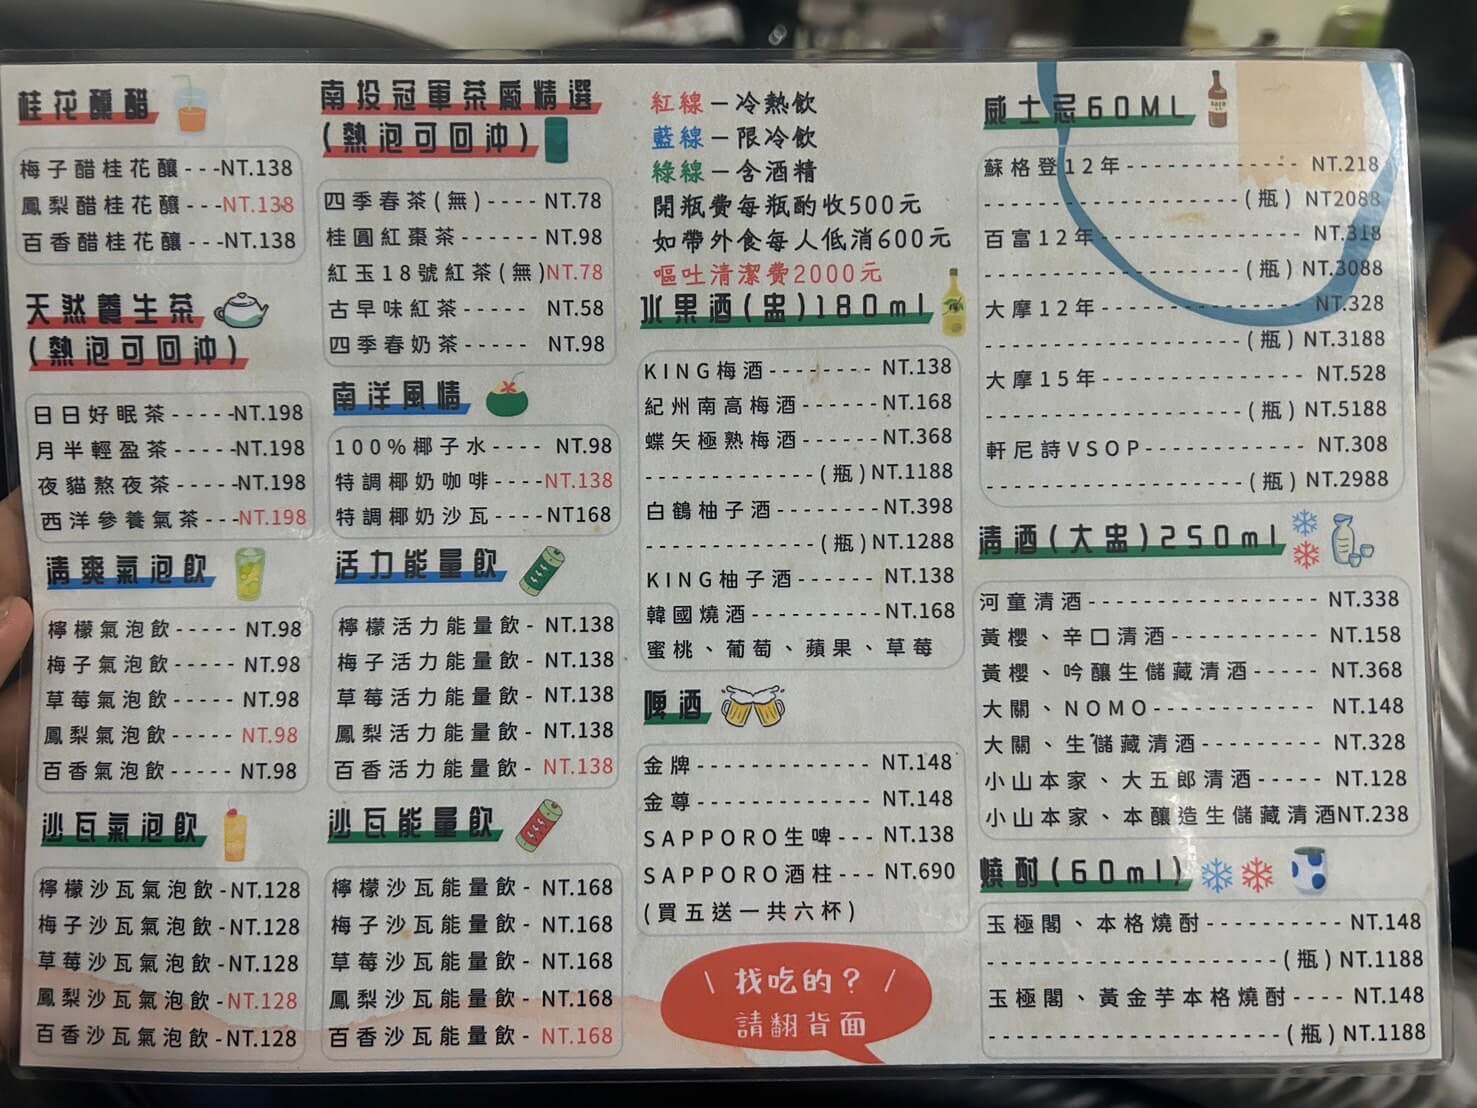 桂花釀醋
梅子醋桂花釀---NT.138
鳳梨醋桂花釀---NT.138
百香醋桂花釀---NT.138
天然養生茶
(熱泡可回沖)
日日好眠茶-----NT.198
月半輕盈茶-----NT.198
夜貓熬夜茶-----NT.198
西洋參養氣茶---NT.198
清爽氣泡飲
檸檬氣泡飲-----NT.98
梅子氣泡飲-----NT.98
草莓氣泡飲-----NT.98
鳳梨氣泡飲-----NT.98
百香氣泡飲-----NT.98
沙瓦氣泡飲
檸檬沙瓦氣泡飲-NT.128
梅子沙瓦氣泡飲-NT.128
草莓沙瓦氣泡飲-NT.128
鳳梨沙瓦氣泡飲-NT.128
百香沙瓦氣泡飲-NT.128
南投冠軍茶廠精選
(熱泡可回沖)
四季春茶(無)----NT.78
桂圓紅棗茶------NT.98
紅玉18號紅茶(無)NT.78
古早味紅茶-----NT.58
四季春奶茶-----NT.98
南洋風情
100%椰子水----NT.98
特調椰奶咖啡----NT.138
特調椰奶沙瓦----NT168
活力能量飲
檸檬活力能量飲-NT.138
梅子活力能量飲-NT.138
草莓活力能量飲-NT.138
鳳梨活力能量飲-NT.138
百香活力能量飲-NT.138
沙瓦能量飲
檸檬沙瓦能量飲-NT.168
梅子沙瓦能量飲-NT.168
草莓沙瓦能量飲-NT.168
鳳梨沙瓦能量飲-NT.168
百香沙瓦能量飲-NT.168
紅線－冷熱飲
藍線－限冷飲
綠線－含酒精
開瓶費每瓶酌收500元
如帶外食每人低消600元
嘔吐清潔費2000元
水果酒(盅)180ml
KING梅酒--------NT.138
紀州南高梅酒------NT.168
蝶矢極熟梅酒------NT.368
-------------(瓶)NT.1188
白鶴柚子酒--------NT.398
-------------(瓶)NT.1288
KING柚子酒------NT.138
韓國燒酒----------NT.168
蜜桃、葡萄、蘋果、草莓
啤酒
金牌-------------NT.148
金尊-------------NT.148
SAPPORO生啤---NT.138
SAPPORO酒柱---NT.690
(買五送一共六杯)
\ 找吃的？ /
請翻背面
威士忌60ML
蘇格登12年-------------NT.218
--------------------(瓶)NT2088
百富12年---------------NT.318
--------------------(瓶)NT.3088
大摩12年---------------NT.328
--------------------(瓶)NT.3188
大摩15年---------------NT.528
--------------------(瓶)NT.5188
軒尼詩VSOP------------NT.308
--------------------(瓶)NT.2988
清酒(大盅)250ml
河童清酒-----------------NT.338
黃櫻、辛口清酒-----------NT.158
黃櫻、吟釀生儲藏清酒-----NT.368
大關、NOMO------------NT.148
大關、生儲藏清酒---------NT.328
小山本家、大五郎清酒-----NT.128
小山本家、本釀造生儲藏清酒NT.238
燒酎(60ml)
玉極閣、本格燒酎----------NT.148
----------------------(瓶)NT.1188
玉極閣、黃金芋本格燒酎----NT.148
----------------------(瓶)NT.1188